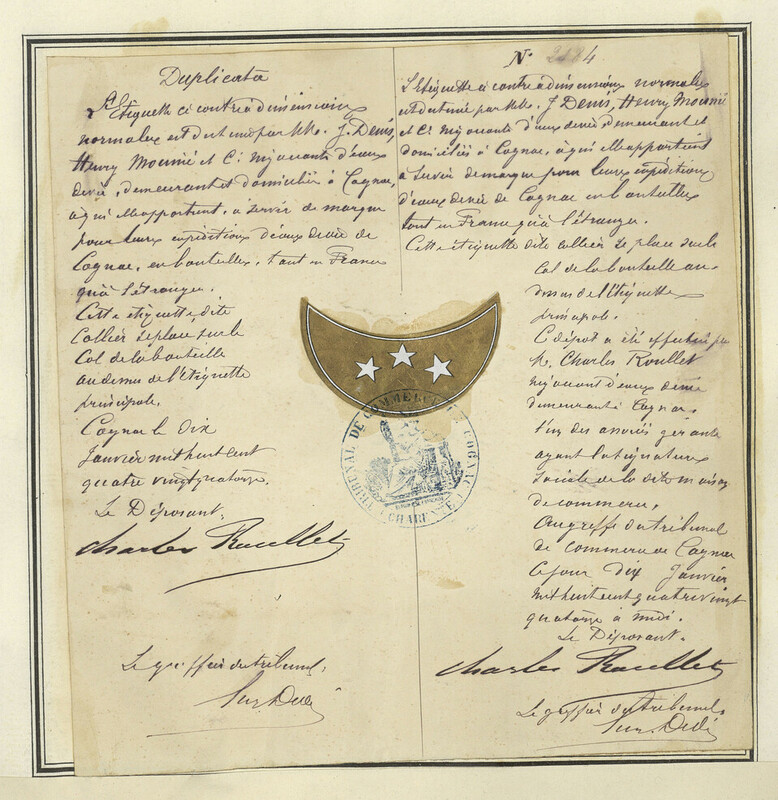 Duplicata
L'Etiquette ci contre à dimensions
normales est destinée par MM. J. Denis,
Henry Mounié et Cie Négociants d'eaux
devie, demeurant et domiciliés à Cognac,
à qui elle appartient, à servir de marque
pour leurs expéditions d'eaux de vie de
Cognac, en bouteilles, tant en France
qu'à l'étranger.
Cette étiquette dite
Collier se place sur le
Col de la bouteille
au dessus de l'étiquette
principale.
Cognac le Dix
Janvier mil huit cent
quatre vingt quatorze.
Le Déposant,
Charles Roullet
Le greffier du tribunal,
N°
L'Etiquette ci contre à dimensions normales
est destinée par MM. J. Denis, Henry Mounié
et Cie Négociants d'eaux devie, demeurant et
domiciliés à Cognac, à qui elle appartient
à servir de marque pour leurs expéditions
d'eaux de vie de Cognac en bouteilles
tant en France qu'à l'étranger.
Cette étiquette dite collier se place sur le
Col de la bouteille au-
dessus de l'étiquette
principale.
Ce dépôt a été effectué par
M. Charles Roullet
négociant d'eaux devie
demeurant à Cognac,
l'un des associés gérants
ayant la signature
sociale de la dite maison
de commerce,
Au greffe du tribunal
de commerce de Cognac
ce jour dix Janvier
mil huit cent quatre vingt
quatorze à midi.
Le Déposant.
Charles Roullet
Le greffier du tribunal,
TRIBUNAL DE COMMERCE DE COGNAC
(CHARENTE)